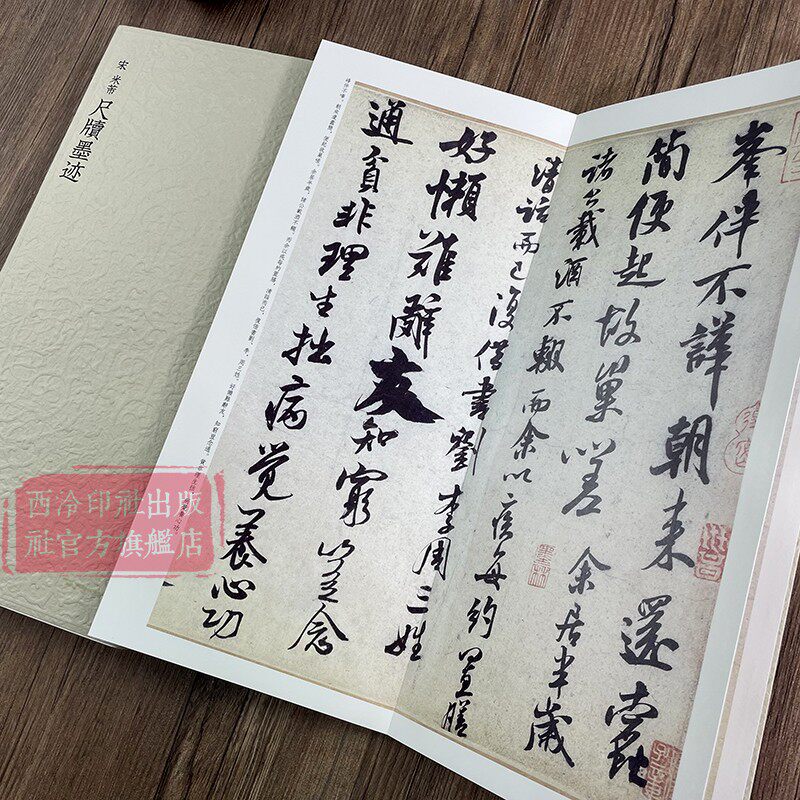 宋 米芾 尺牍墨迹
峯伴不譁朝来還蠹
簡便起故巢嗟余居半歲
諸公載酒不輟而余以疾每約置膳
清話而已復借書劉李周三姓
好懶難辭友知窮豈念
通貧非理生拙病覚養心功
西泠印社出版
社官方旗艦店